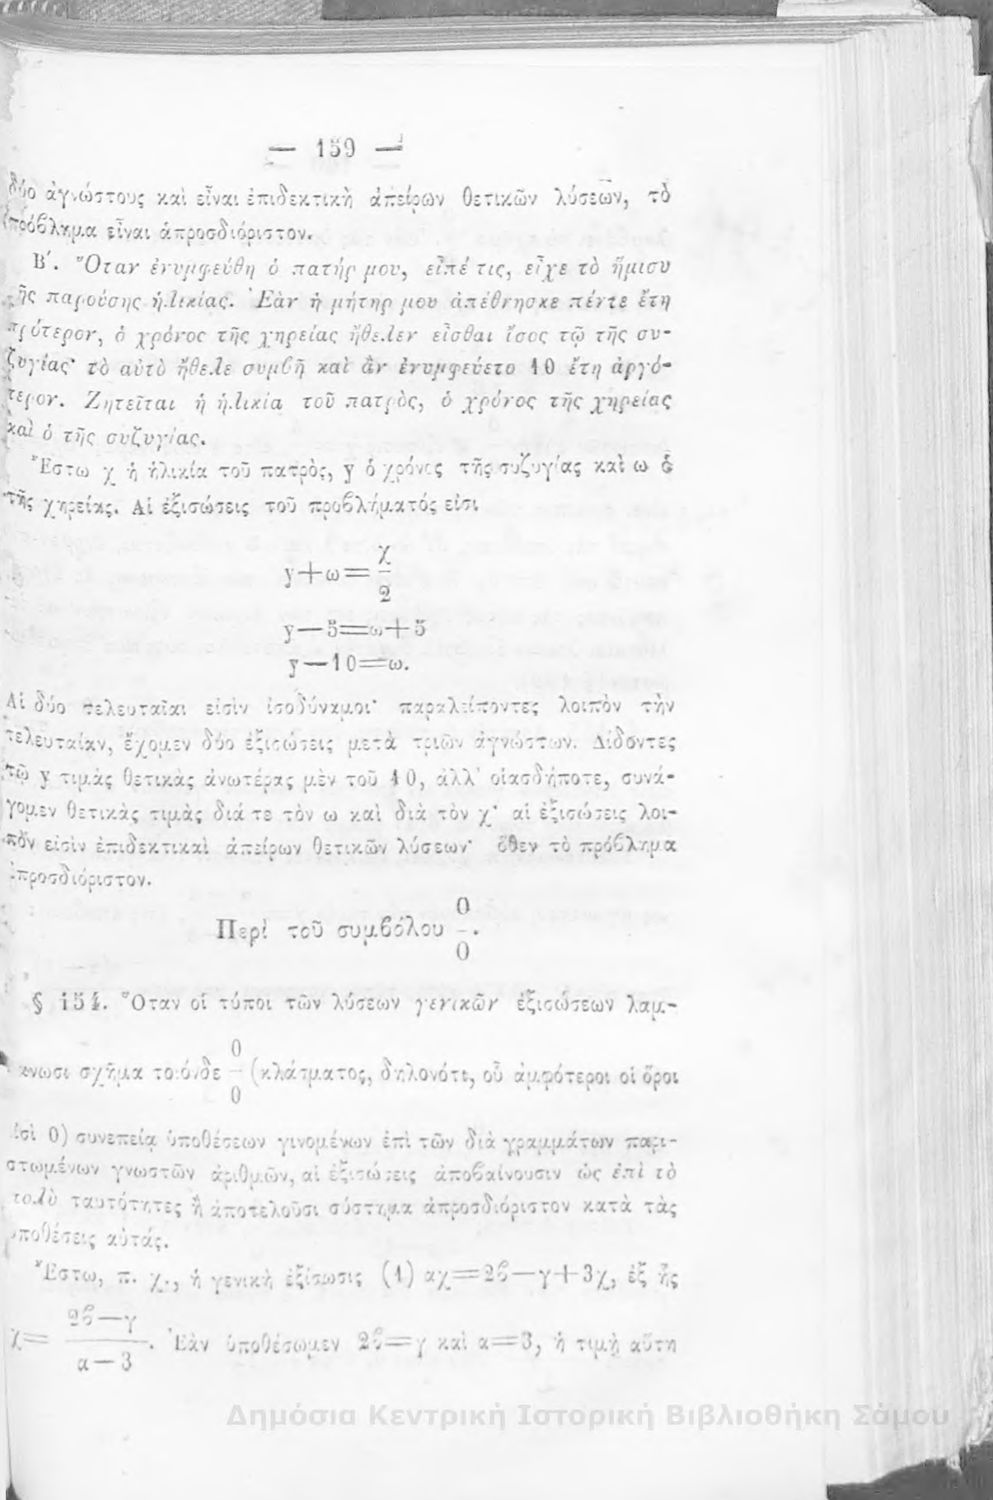 — 159 —
δύο ἀγνώστους καὶ εἶναι ἐπιδεκτικὴ ἀπείρων θετικῶν λύσεων, τὸ
πρόβλημα εἶναι ἀπροσδιόριστον.
Β΄. Ὅταν ἐνυμφεύθη ὁ πατήρ μου, εἶπέ τις, εἶχε τὸ ἥμισυ
τῆς παρούσης ἡλικίας. Ἐὰν ἡ μήτηρ μου ἀπέθνησκε πέντε ἔτη
πρότερον, ὁ χρόνος τῆς χηρείας ἤθελεν εἶσθαι ἴσος τῷ τῆς συ-
ζυγίας· τὸ αὐτὸ ἤθελε συμβῆ καὶ ἂν ἐνυμφεύετο 10 ἔτη ἀργό-
τερον. Ζητεῖται ἡ ἡλικία τοῦ πατρὸς, ὁ χρόνος τῆς χηρείας
καὶ ὁ τῆς συζυγίας.
Ἔστω χ ἡ ἡλικία τοῦ πατρὸς, y ὁ χρόνος τῆς συζυγίας καὶ ω ὁ
τῆς χηρείας. Αἱ ἐξισώσεις τοῦ προβλήματός εἰσι
y+ω=χ/2
y—5=ω+5
y—10=ω.
Αἱ δύο τελευταῖαι εἰσὶν ἰσοδύναμοι· παραλείποντες λοιπὸν τὴν
τελευταίαν, ἔχομεν δύο ἐξισώσεις μετὰ τριῶν ἀγνώστων. Δίδοντες
τῷ y τιμὰς θετικὰς ἀνωτέρας μὲν τοῦ 10, ἀλλ' οἱασδήποτε, συνά-
γομεν θετικὰς τιμὰς διά τε τὸν ω καὶ διὰ τὸν χ· αἱ ἐξισώσεις λοι-
πὸν εἰσὶν ἐπιδεκτικαὶ ἀπείρων θετικῶν λύσεων· ὅθεν τὸ πρόβλημα
ἀπροσδιόριστον.
Περὶ τοῦ συμβόλου 0/0.
§ 154. Ὅταν οἱ τύποι τῶν λύσεων γενικῶν ἐξισώσεων λαμ-
βάνωσι σχῆμα τοιόνδε 0/0 (κλάσματος, δηλονότι, οὗ ἀμφότεροι οἱ ὅροι
εἰσὶ 0) συνεπείᾳ ὑποθέσεων γινομένων ἐπὶ τῶν διὰ γραμμάτων παρι-
στωμένων γνωστῶν ἀριθμῶν, αἱ ἐξισώσεις ἀποβαίνουσιν ὡς ἐπὶ τὸ
πολὺ ταυτότητες ἢ ἀποτελοῦσι σύστημα ἀπροσδιόριστον κατὰ τὰς
ὑποθέσεις αὐτάς.
Ἔστω, π. χ., ἡ γενικὴ ἐξίσωσις (1) αχ=2β—γ+3χ, ἐξ ἧς
χ=2β—γ/α—3. Ἐὰν ὑποθέσωμεν 2β=γ καὶ α=3, ἡ τιμὴ αὕτη
Δημόσια Κεντρική Ιστορική Βιβλιοθήκη Σάμου